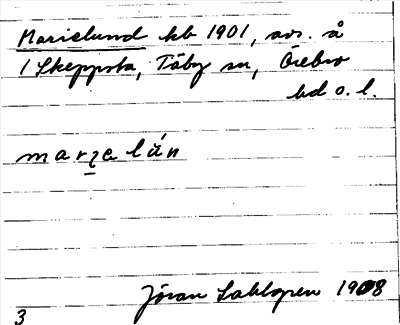 Marielund kb 1901, avs. å
1 Skeppsta, Täby sn, Örebro
hd o. l.
marze lún
Jöran Sahlgren 1908
3